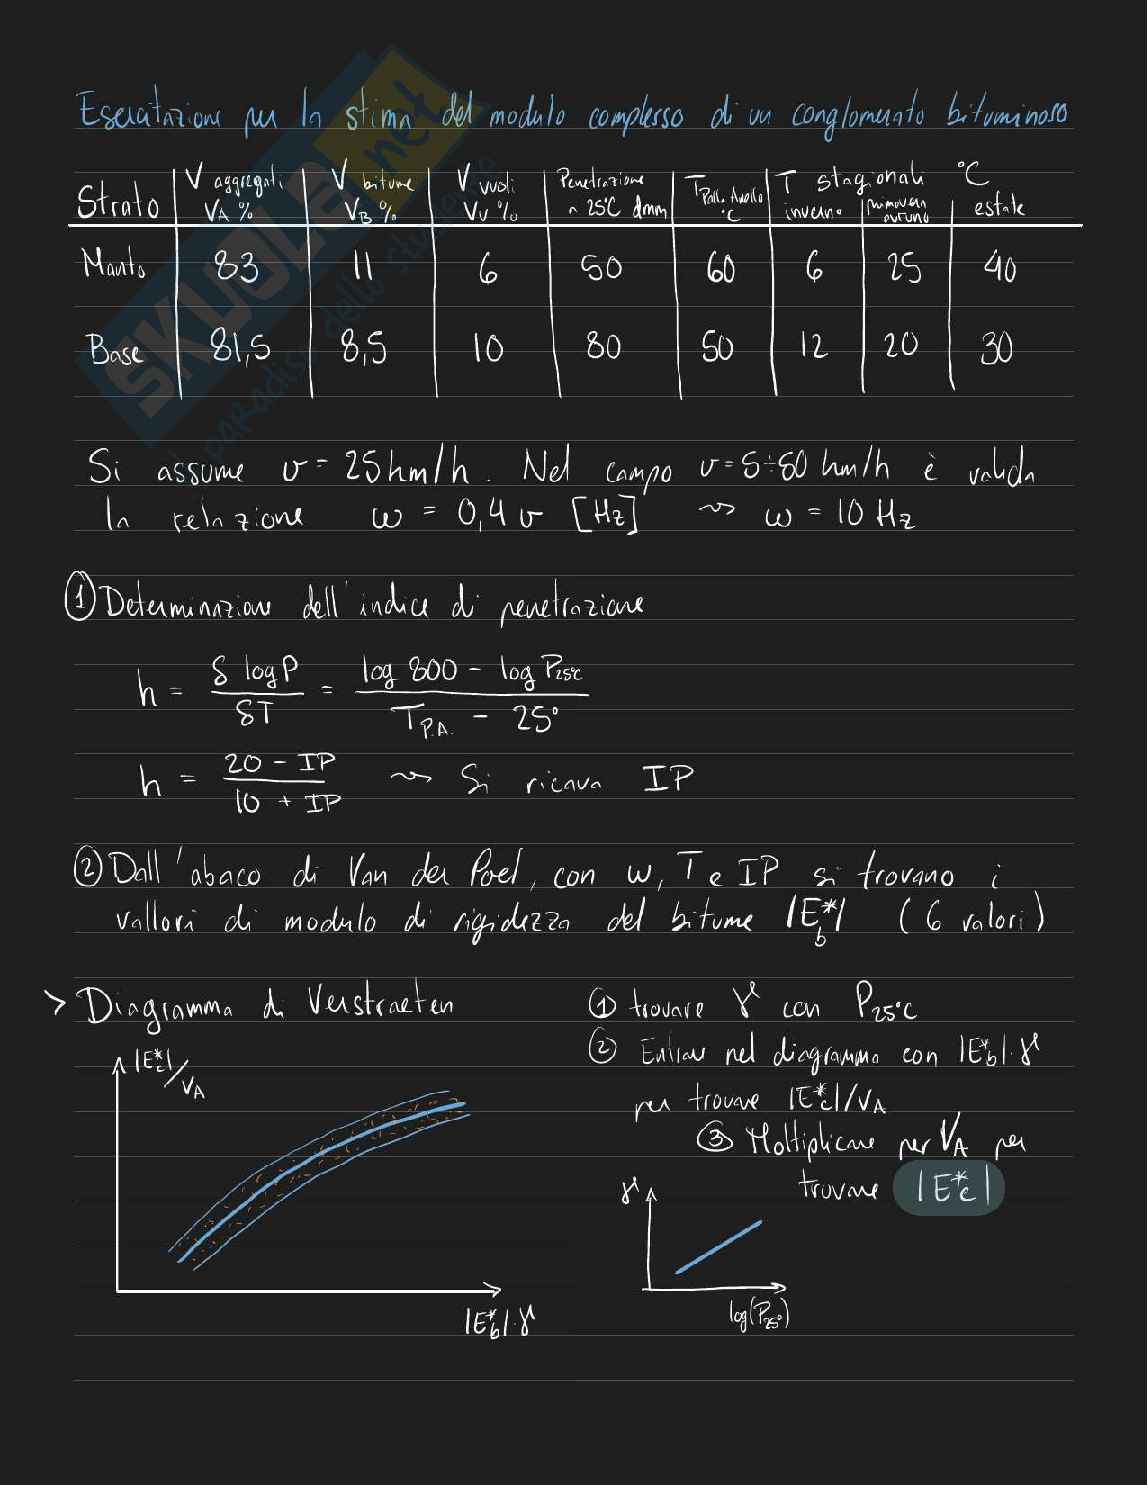 Esercitazione per la stima del modulo complesso di un conglomerato bituminoso
Strato | V aggregati VA % | V bitume VB % | V vuoti VV % | Penetrazione a 25°C dmm | T Pall. Anello °C | T stagionali °C inverno | primavera autunno | estate
Manto | 83 | 11 | 6 | 50 | 60 | 6 | 25 | 40
Base | 81,5 | 8,5 | 10 | 80 | 50 | 12 | 20 | 30
Si assume v = 25 km/h. Nel campo v = 5÷50 km/h è valida
la relazione ω = 0,4 v [Hz] ⇝ ω = 10 Hz
① Determinazione dell'indice di penetrazione
h = δ log P / δT = (log 800 - log P25°C) / (T P.A. - 25°)
h = (20 - IP) / (10 + IP) ⇝ Si ricava IP
② Dall'abaco di Van der Poel, con ω, T e IP si trovano i
vallori di modulo di rigidezza del bitume |E*b| (6 valori)
> Diagramma di Verstraeten
|E*c|/VA
|E*b|·γ
① trovare γ con P25°C
② Entrare nel diagramma con |E*b|·γ
per trovare |E*c|/VA
③ Moltiplicare per VA per
trovare |E*c|
γ
log(P25°)
SKUOLA.net
il paradiso dello studente